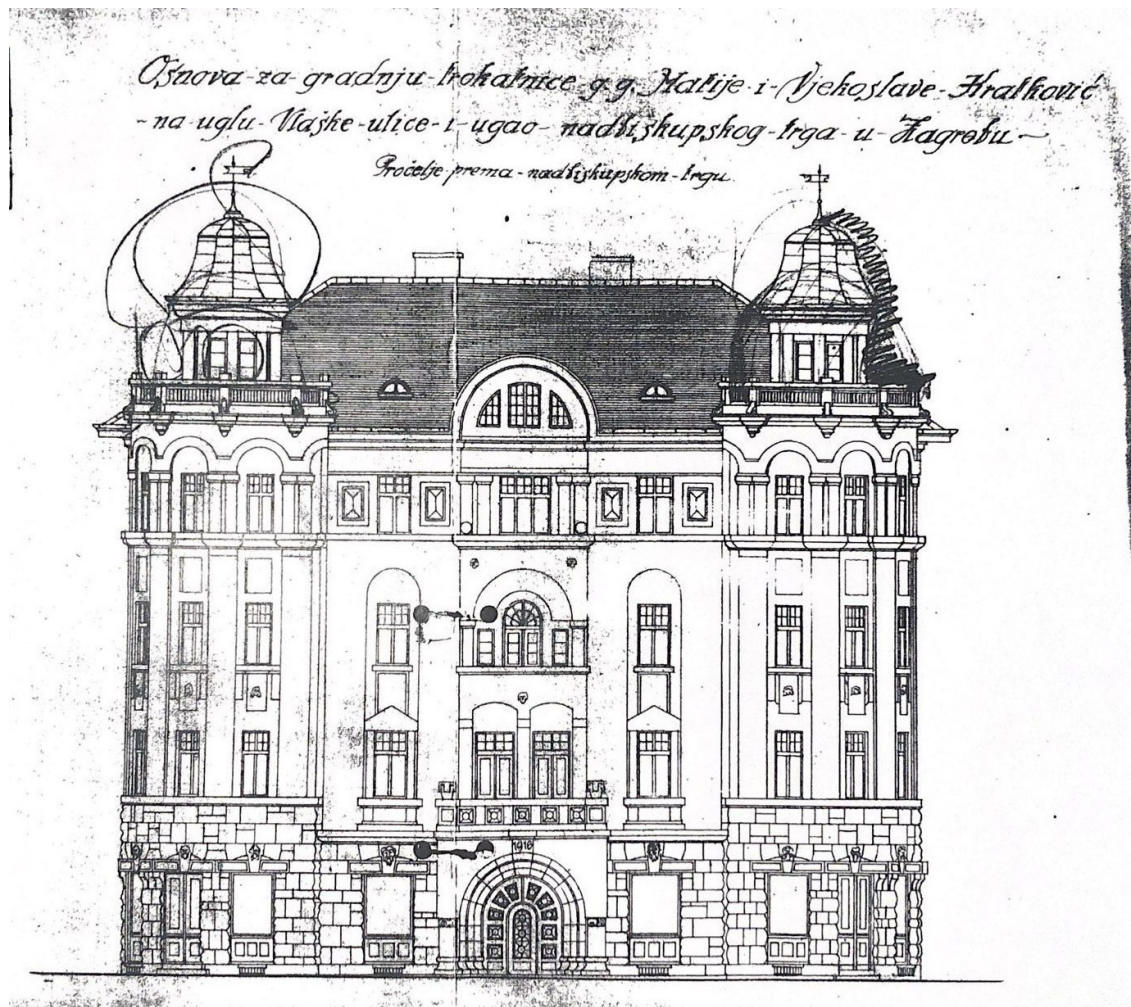 Osnova-za-gradnju-trokatnice g.g. Matije-i-Vjekoslave-Kratković
-na-uglu-Vlaške-ulice-i-ugao-nadbiskupskog-trga-u-Zagrebu-
Pročelje-prema-nadbiskupskom-trgu.
1910